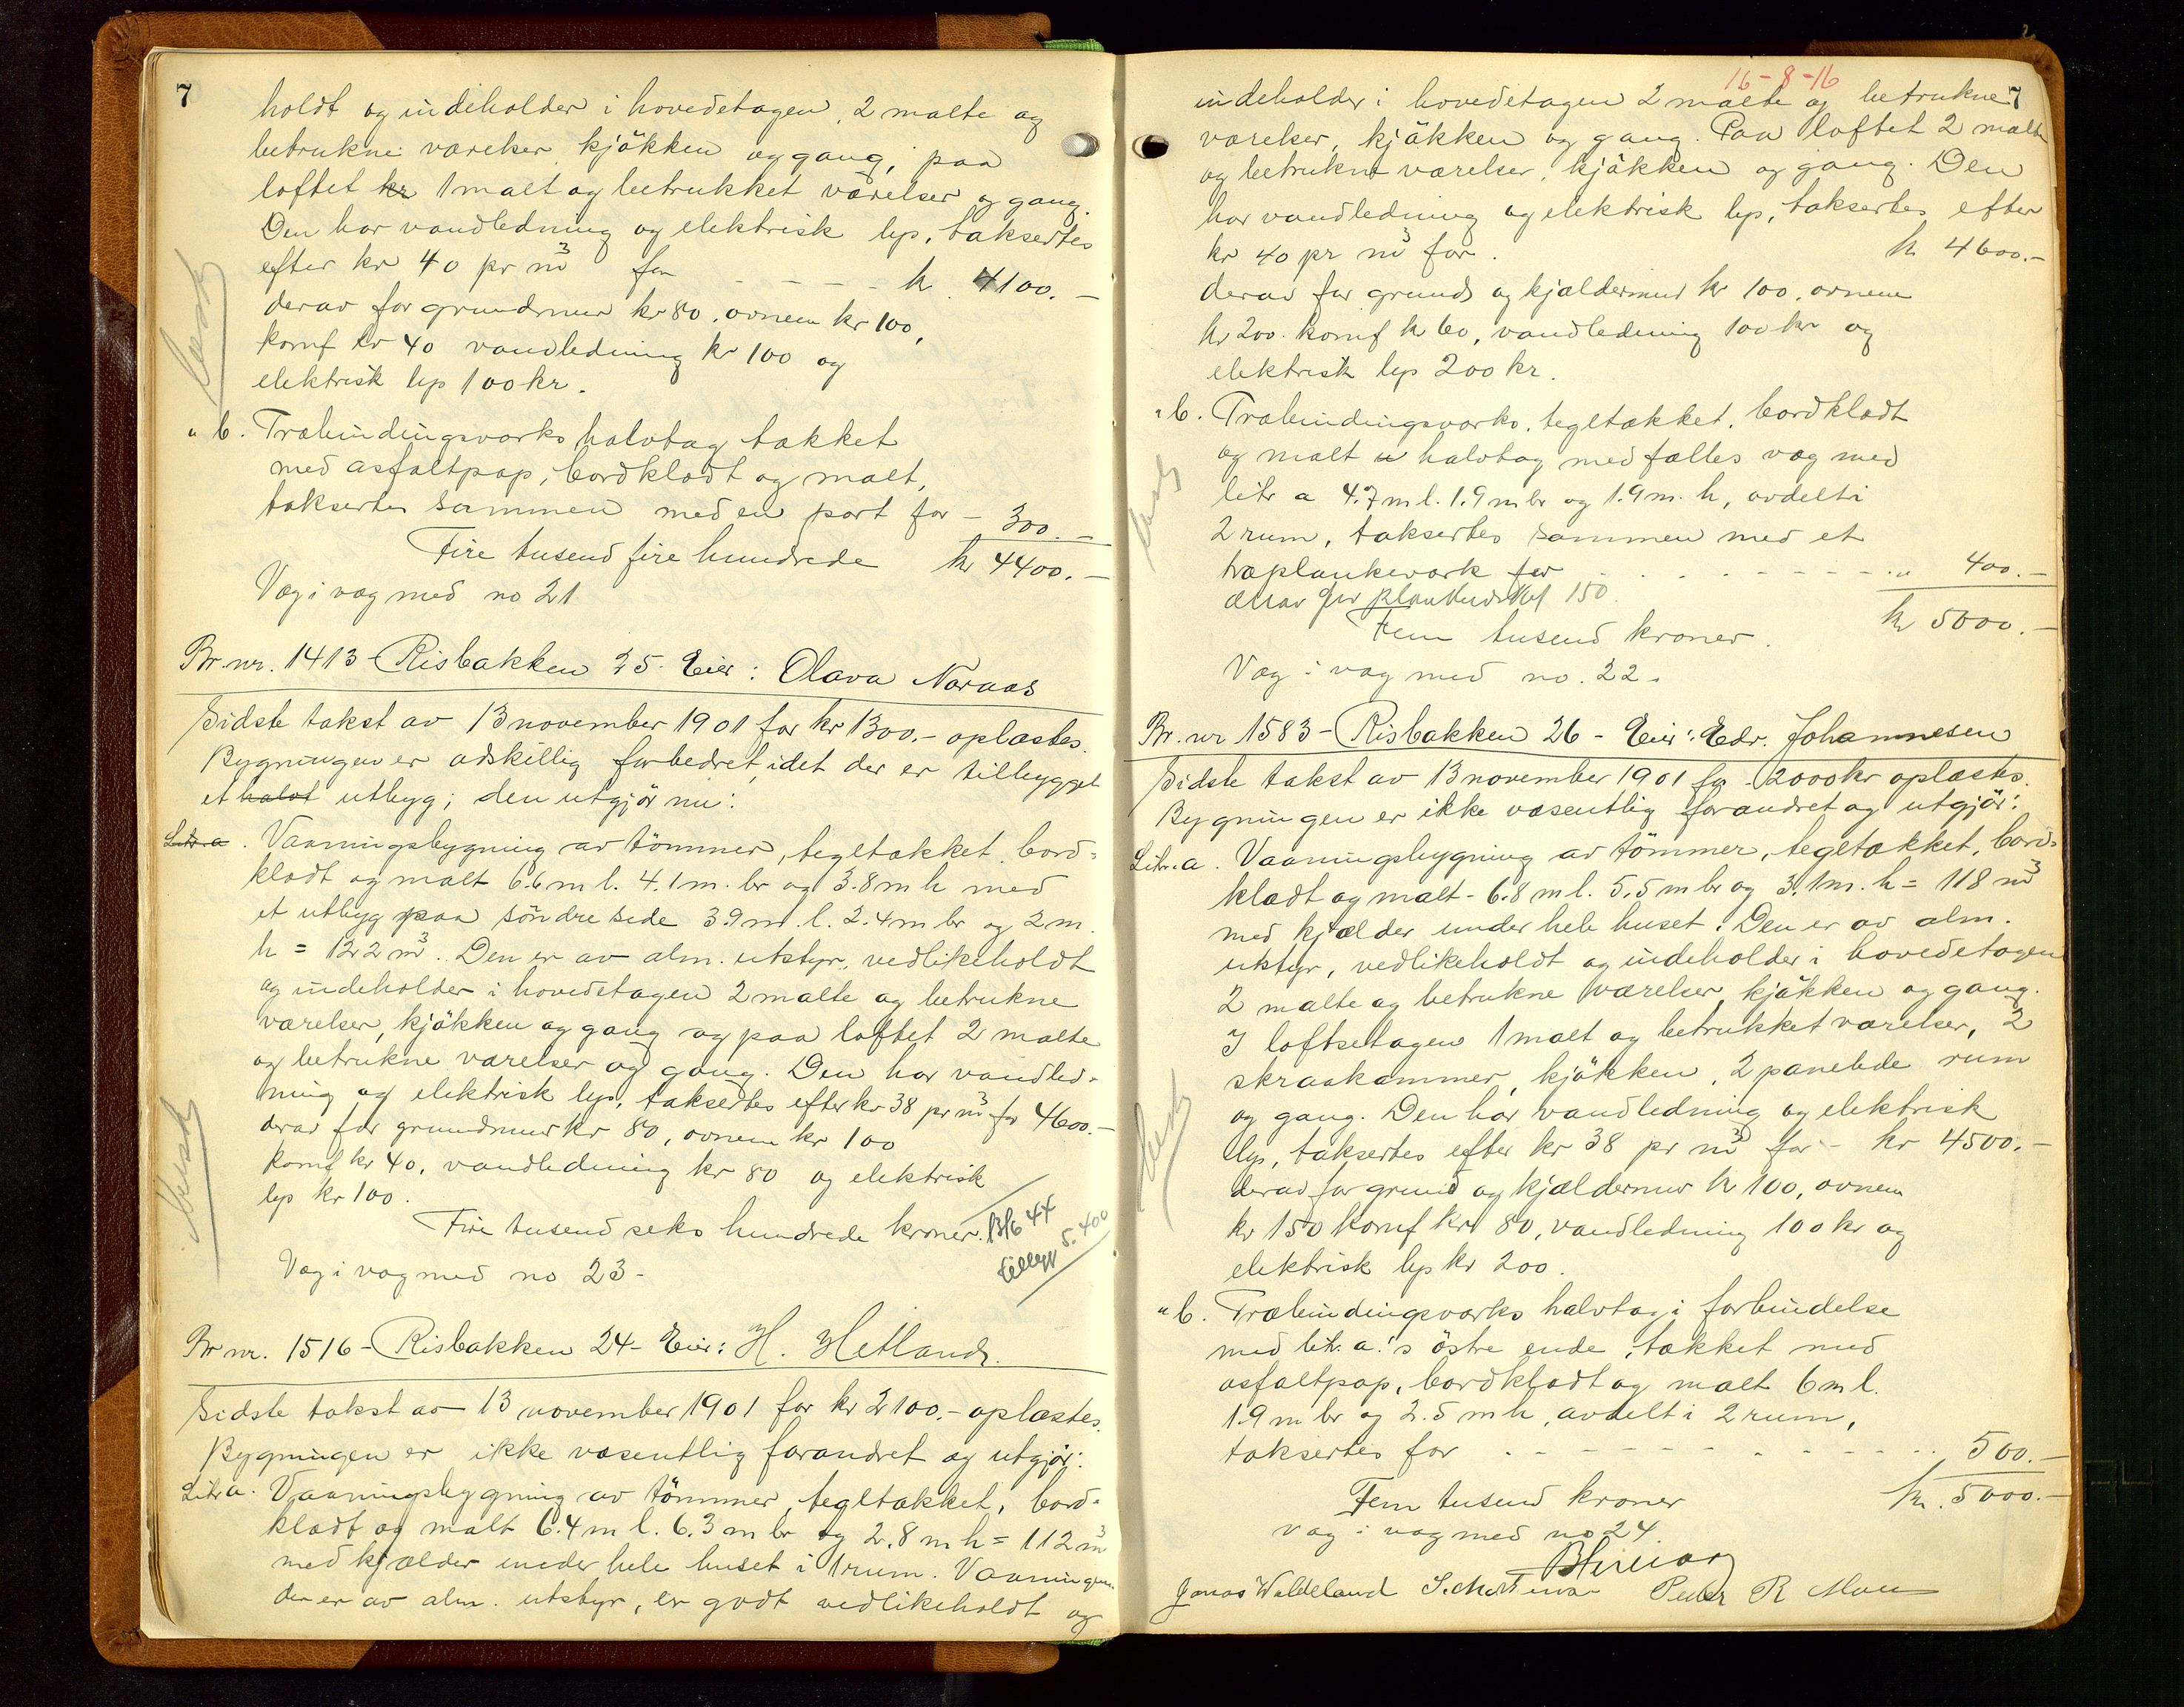 7
holdt og indeholder i hovedetagen, 2 malte og
betrukne værelser, kjökken og gang, paa
loftet kr 1 malt og betrukket værelser og gang.
Den har vandledning og elektrisk lys, taksertes
efter kr 40 pr m³ for - - - - - kr 4100.-
derav for grundmur kr 80, ovnem kr 100,
komf kr 40 vandledning kr 100 og
elektrisk lys 100 kr.
" b. Træbindingsverks halvtag tækket
med asfaltpap, bordklædt og malt,
taksertes sammen med en port for - 300.-
Fire tusend fire hundrede kr 4400.-
Væg i væg med no 21
Br. nr. 1413 - Risbakken 25. Eier: Olava Noraas
Sidste takst av 13 november 1901 for kr 1300.- oplæstes.
Bygningen er adskillig forbedret, idet der er tilbygget
et halvt utbyg; den utgjör nu:
Litr. a. Vaaningsbygning av tömmer, tegltækket, bord-
klædt og malt 6.6 m l. 4.1 m. br og 3.8 m h med
et utbyg paa söndre side 3.9 m. l. 2.4 m br og 2 m.
h = 122 m³. Den er av alm. utstyr, vedlikeholdt
og indeholder i hovedetagen 2 malte og betrukne
værelser, kjökken og gang og paa loftet 2 malte
og betrukne værelser og gang. Den har vandled-
ning og elektrisk lys, taksertes efter kr 38 pr m³ for 4600.-
derav for grundmur kr 80, ovnem kr 100
komf kr 40, vandledning kr 80 og elektrisk
lys kr 100.
Fire tusend seks hundrede kroner. 13/6 44
tillegg 5.400
Væg i væg med no 23-
Br nr. 1516 - Risbakken 24- Eier: H. Hetland.
Sidste takst av 13 november 1901 for kr 2100.- oplæstes.
Bygningen er ikke væsentlig forandret og utgjör:
Litr a. Vaaningsbygning av tömmer, tegltækket, bord-
klædt og malt 6.4 m l. 6.3 m br og 2.8 m h = 112 m³
med kjælder under hele huset i 1 rum. Vaaningen
der er av alm. utstyr, er godt vedlikeholdt og
16-8-16
7
indeholder i hovedetagen 2 malte og betrukne
værelser, kjökken og gang. Paa loftet 2 malte
og betrukne værelser, kjökken og gang. Den
har vandledning og elektrisk lys, taksertes efter
kr 40 pr m³ for . kr 4600.-
derav for grund og kjældermur kr 100, ovnem
kr 200. komf kr 60, vandledning 100 kr og
elektrisk lys 200 kr.
" b. Træbindingsverks, tegltækket, bordklædt
og malt halvtag med fælles væg med
litr a 4.7 m l. 1.9 m br og 1.9 m. h, avdelt i
2 rum, taksertes sammen med et
træplankeverk for - - - - - " 400.-
derav for plankeverket 150.
Fem tusend kroner. kr 5000.-
Væg i væg med no. 22.
Br. nr 1583 - Risbakken 26 - Eier: Edv. Johannesen
Sidste takst av 13 november 1901 for 2000 kr oplæstes.
Bygningen er ikke væsentlig forandret og utgjör:
Litr. a. Vaaningsbygning av tömmer, tegltækket, bord-
klædt og malt - 6.8 m l. 5.5 m br og 3.1 m. h = 118 m³
med kjælder under hele huset. Den er av alm.
utstyr, vedlikeholdt og indeholder i hovedetagen
2 malte og betrukne værelser, kjökken og gang.
I loftsetagen 1 malt og betrukket værelser, 2
skraakammer, kjökken, 2 panelede rum
og gang. Den har vandledning og elektrisk
lys, taksertes efter kr 38 pr m³ for - kr 4500.-
derav for grund og kjældermur kr 100, ovnem
kr 150 komf kr 80, vandledning 100 kr og
elektrisk lys kr 200.
" b. Træbindingsverks halvtag i forbindelse
med litr. a.'s östre ende, tækket med
asfaltpap, bordklædt og malt 6 m l.
1.9 m br og 2.5 m h, avdelt i 2 rum,
taksertes for - - - - - 500.-
Fem tusend kroner kr. 5000.-
Væg i væg med no 24
Jonas Waldeland Peder R Moen